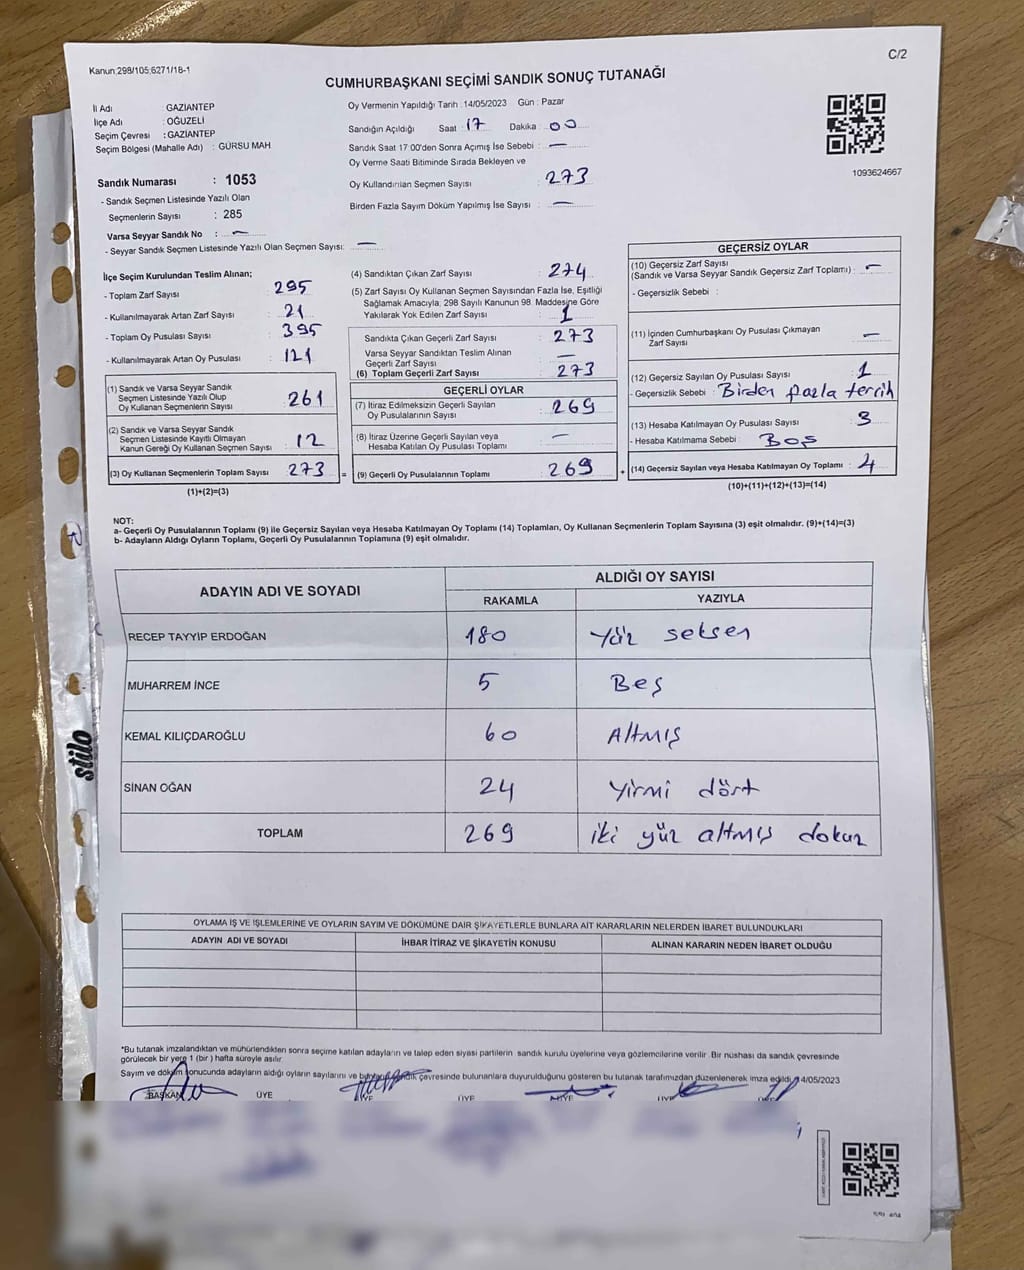 Kanun;298/105;6271/18-1
C/2
CUMHURBAŞKANI SEÇİMİ SANDIK SONUÇ TUTANAĞI
İl Adı : GAZİANTEP
İlçe Adı : OĞUZELİ
Seçim Çevresi : GAZİANTEP
Seçim Bölgesi (Mahalle Adı) : GÜRSU MAH
Sandık Numarası : 1053
- Sandık Seçmen Listesinde Yazılı Olan
Seçmenlerin Sayısı : 285
Varsa Seyyar Sandık No : —
- Seyyar Sandık Seçmen Listesinde Yazılı Olan Seçmen Sayısı: —
Oy Vermenin Yapıldığı Tarih : 14/05/2023 Gün : Pazar
Sandığın Açıldığı Saat : 17 Dakika : 00
Sandık Saat 17:00'den Sonra Açımış İse Sebebi : —
Oy Verme Saati Bitiminde Sırada Bekleyen ve
Oy Kullandırılan Seçmen Sayısı : 273
Birden Fazla Sayım Döküm Yapılmış İse Sayısı : —
1093624667
İlçe Seçim Kurulundan Teslim Alınan;
- Toplam Zarf Sayısı : 295
- Kullanılmayarak Artan Zarf Sayısı : 21
- Toplam Oy Pusulası Sayısı : 395
- Kullanılmayarak Artan Oy Pusulası : 121
(1) Sandık ve Varsa Seyyar Sandık
Seçmen Listesinde Yazılı Olup
Oy Kullanan Seçmenlerin Sayısı : 261
(2) Sandık ve Varsa Seyyar Sandık
Seçmen Listesinde Kayıtlı Olmayan
Kanun Gereği Oy Kullanan Seçmen Sayısı : 12
(3) Oy Kullanan Seçmenlerin Toplam Sayısı : 273 =
(1)+(2)=(3)
(4) Sandıktan Çıkan Zarf Sayısı : 274
(5) Zarf Sayısı Oy Kullanan Seçmen Sayısından Fazla İse, Eşitliği
Sağlamak Amacıyla, 298 Sayılı Kanunun 98. Maddesine Göre
Yakılarak Yok Edilen Zarf Sayısı : 1
Sandıkta Çıkan Geçerli Zarf Sayısı : 273
Varsa Seyyar Sandıktan Teslim Alınan
Geçerli Zarf Sayısı : —
(6) Toplam Geçerli Zarf Sayısı : 273
GEÇERLİ OYLAR
(7) İtiraz Edilmeksizin Geçerli Sayılan
Oy Pusulalarının Sayısı : 269
(8) İtiraz Üzerine Geçerli Sayılan veya
Hesaba Katılan Oy Pusulası Toplamı : —
(9) Geçerli Oy Pusulalarının Toplamı : 269 +
GEÇERSİZ OYLAR
(10) Geçersiz Zarf Sayısı
(Sandık ve Varsa Seyyar Sandık Geçersiz Zarf Toplamı) : —
- Geçersizlik Sebebi :
(11) İçinden Cumhurbaşkanı Oy Pusulası Çıkmayan
Zarf Sayısı : —
(12) Geçersiz Sayılan Oy Pusulası Sayısı : 1
- Geçersizlik Sebebi : Birden fazla tercih
(13) Hesaba Katılmayan Oy Pusulası Sayısı : 3
- Hesaba Katılmama Sebebi : Boş
(14) Geçersiz Sayılan veya Hesaba Katılmayan Oy Toplamı : 4
(10)+(11)+(12)+(13)=(14)
NOT:
a- Geçerli Oy Pusulalarının Toplamı (9) ile Geçersiz Sayılan veya Hesaba Katılmayan Oy Toplamı (14) Toplamları, Oy Kullanan Seçmenlerin Toplam Sayısına (3) eşit olmalıdır. (9)+(14)=(3)
b- Adayların Aldığı Oyların Toplamı, Geçerli Oy Pusulalarının Toplamına (9) eşit olmalıdır.
ADAYIN ADI VE SOYADI
ALDIĞI OY SAYISI
RAKAMLA YAZIYLA
RECEP TAYYİP ERDOĞAN 180 Yüz seksen
MUHARREM İNCE 5 Beş
KEMAL KILIÇDAROĞLU 60 Altmış
SİNAN OĞAN 24 Yirmi dört
TOPLAM 269 iki yüz altmış dokuz
OYLAMA İŞ VE İŞLEMLERİNE VE OYLARIN SAYIM VE DÖKÜMÜNE DAİR ŞİKAYETLERLE BUNLARA AİT KARARLARIN NELERDEN İBARET BULUNDUKLARI
ADAYIN ADI VE SOYADI İHBAR İTİRAZ VE ŞİKAYETİN KONUSU ALINAN KARARIN NEDEN İBARET OLDUĞU
*Bu tutanak imzalandıktan ve mühürlendikten sonra seçime katılan adayların ve talep eden siyasi partilerin sandık kurulu üyelerine veya gözlemcilerine verilir. Bir nüshası da sandık çevresinde
görülecek bir yere 1 (bir) hafta süreyle asılır.
Sayım ve döküm sonucunda adayların aldığı oyların sayılarını ve bunların sandık çevresinde bulunanlara duyurulduğunu gösteren bu tutanak tarafımızdan düzenlenerek imza edildi. 14/05/2023
BAŞKAN ÜYE ÜYE ÜYE ÜYE ÜYE
stilo